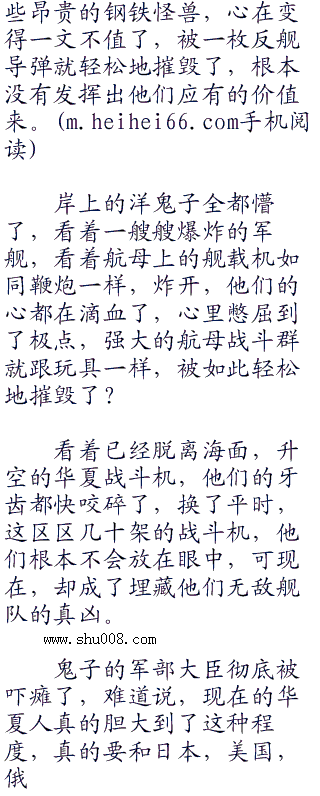 些昂贵的钢铁怪兽，心在变
得一文不值了，被一枚反舰
导弹就轻松地摧毁了，根本
没有发挥出他们应有的价值
来。(m.heihei66.com手机阅
读)
岸上的洋鬼子全都懵
了，看着一艘艘爆炸的军
舰，看着航母上的舰载机如
同鞭炮一样，炸开，他们的
心都在滴血了，心里憋屈到
了极点，强大的航母战斗群
就跟玩具一样，被如此轻松
地摧毁了？
看着已经脱离海面，升
空的华夏战斗机，他们的牙
齿都快咬碎了，换了平时，
这区区几十架的战斗机，他
们根本不会放在眼中，可现
在，却成了埋藏他们无敌舰
队的真凶。
www.shu008.com
鬼子的军部大臣彻底被
吓瘫了，难道说，现在的华
夏人真的胆大到了这种程
度，真的要和日本，美国，
俄